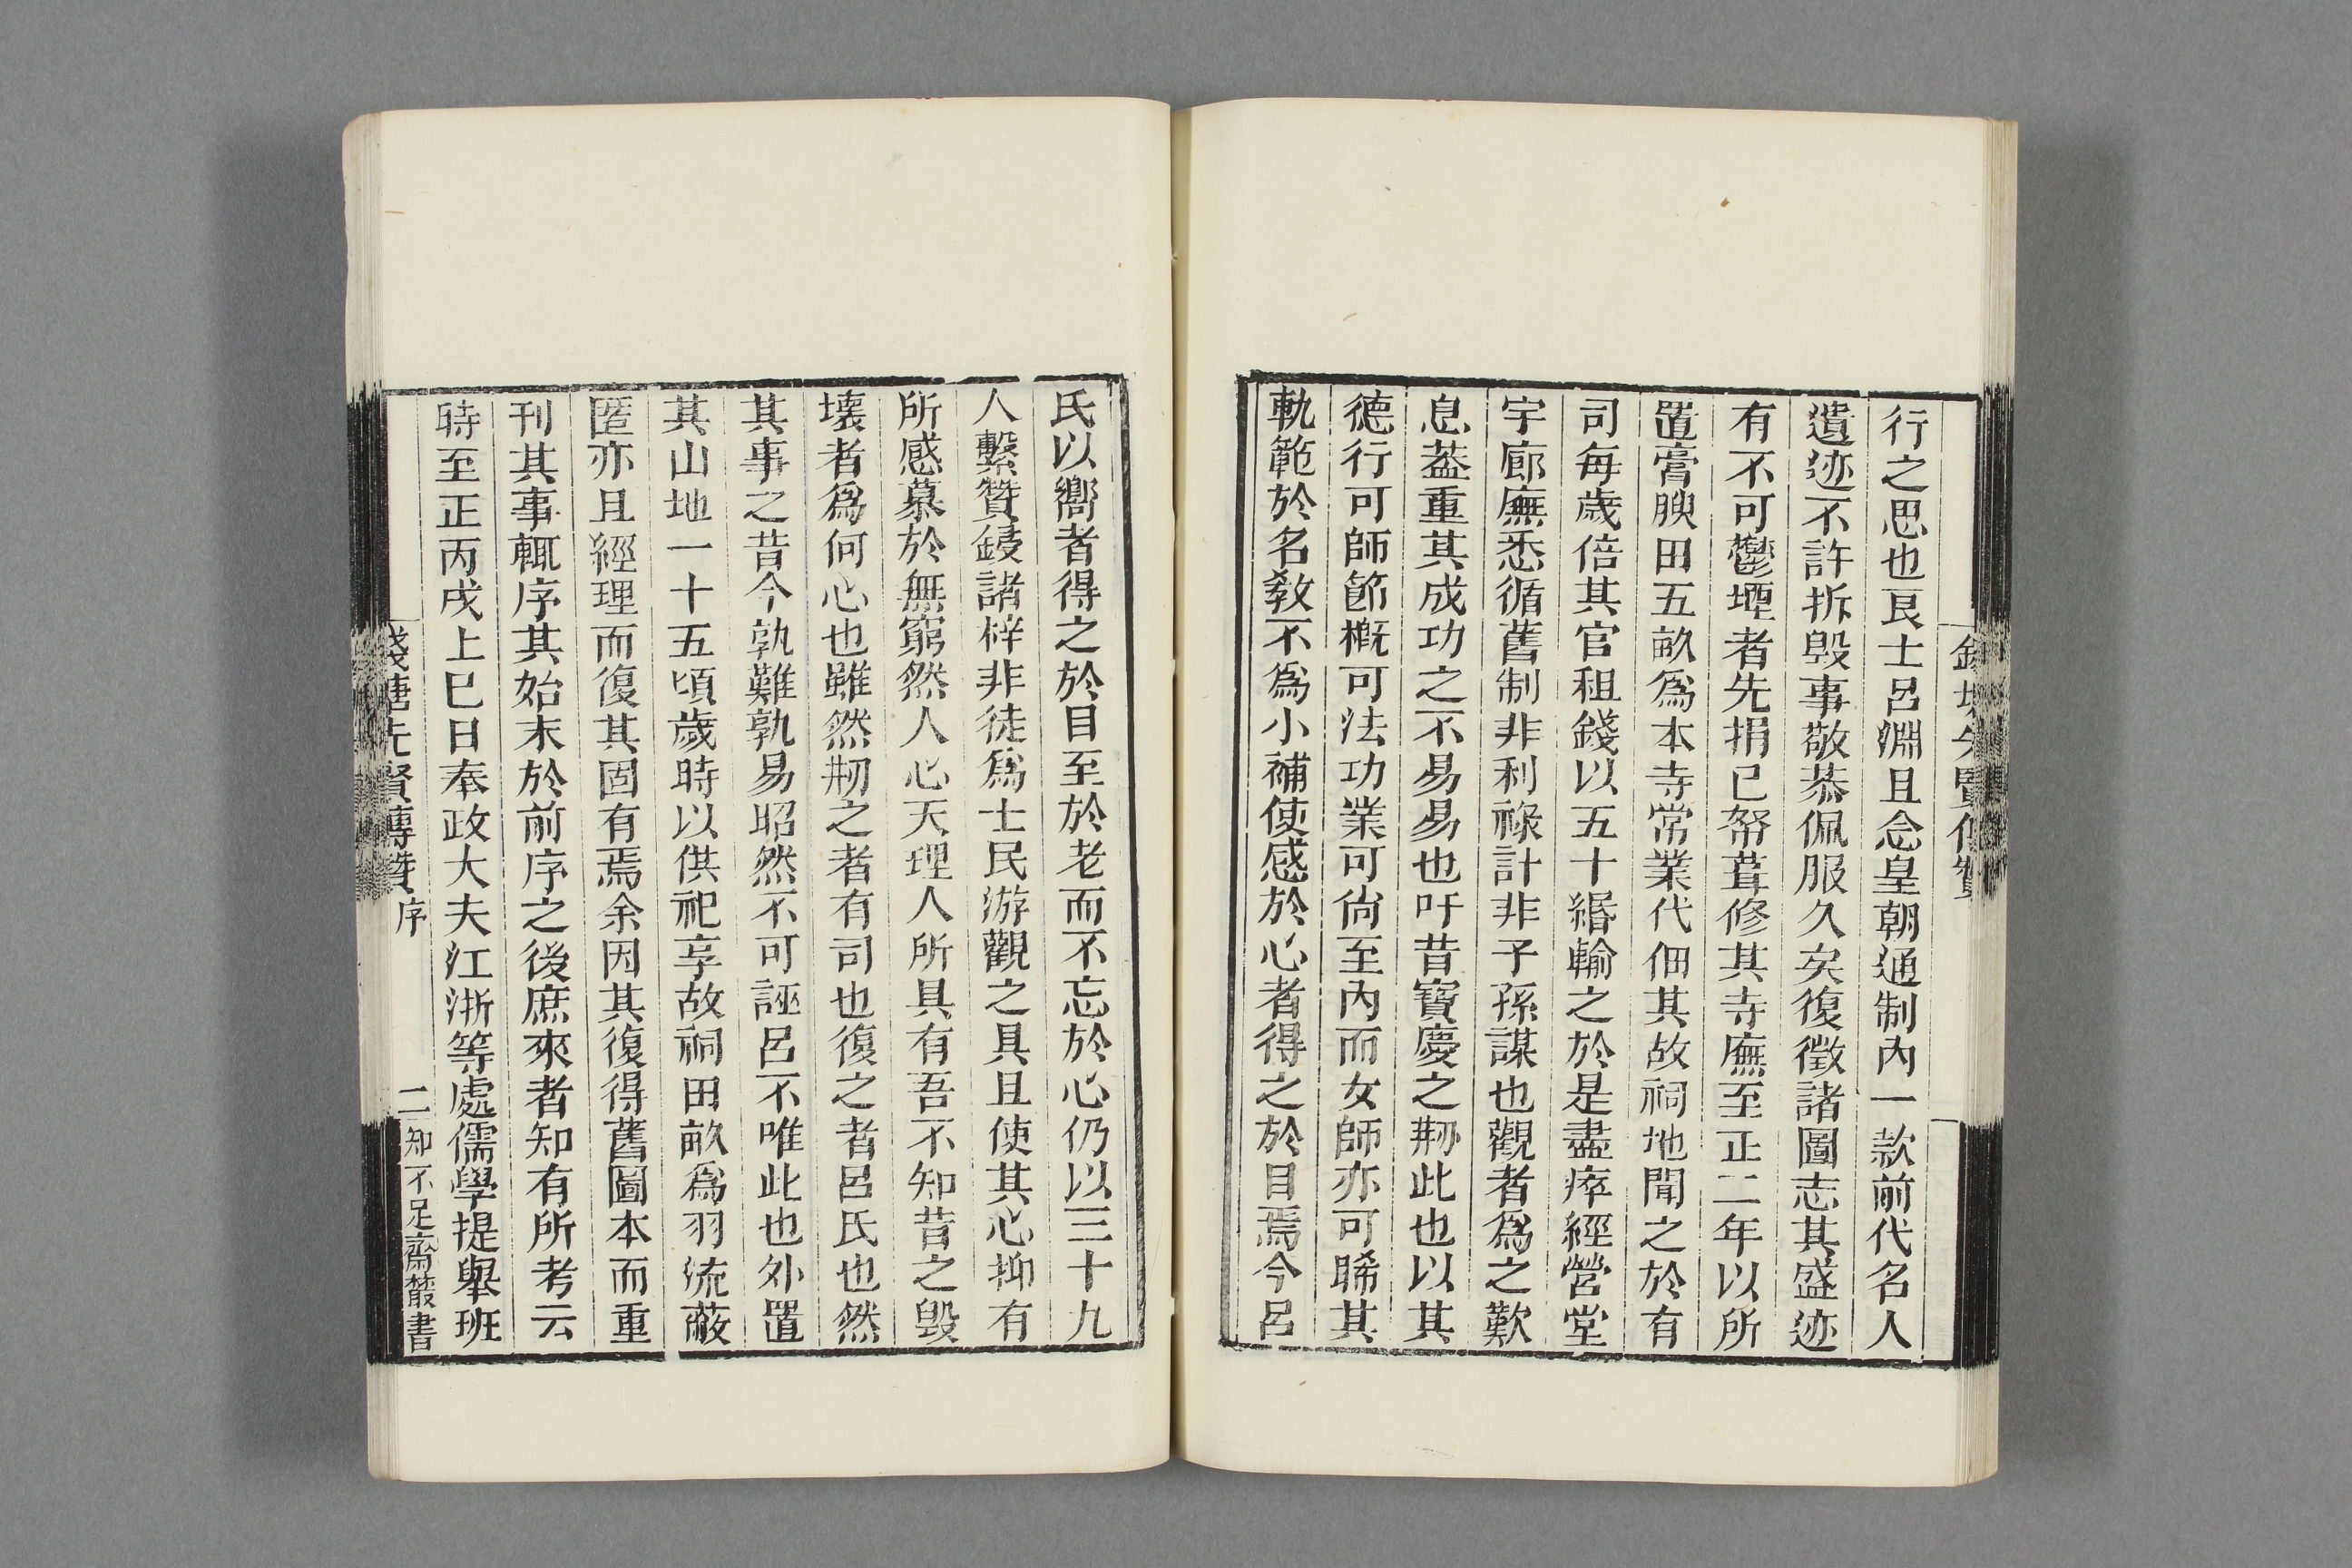 行之思也艮士呂淵且念皇朝通制內一款前代名人
遺迹不許拆毀事敬恭佩服久矣復徵諸圖志其盛迹
有不可鬱堙者先捐已帑葺修其寺廡至正二年以所
置膏腴田五畝爲本寺常業代佃其故祠地聞之於有
司每歲倍其官租錢以五十緡輸之於是盡瘁經營堂
宇廊廡悉循舊制非利祿計非子孫謀也觀者爲之歎
息葢重其成功之不易易也吁昔寶慶之剏此也以其
德行可師節槪可法功業可尙至內而女師亦可睎其
軌範於名敎不爲小補使感於心者得之於目焉今呂
氏以嚮者得之於目至於老而不忘於心仍以三十九
人繫贊鋟諸梓非徒爲士民游觀之具且使其心抑有
所感慕於無窮然人心天理人所具有吾不知昔之毀
壞者爲何心也雖然剏之者有司也復之者呂氏也然
其事之昔今孰難孰易昭然不可誣呂不唯此也外置
其山地一十五頃歲時以供祀享故祠田畝爲羽流蔽
匿亦且經理而復其固有焉余因其復得舊圖本而重
刊其事輒序其始末於前序之後庶來者知有所考云
時至正丙戌上巳日奉政大夫江浙等處儒學提舉班
錢塘先賢傳贊 序 二 知不足齋叢書